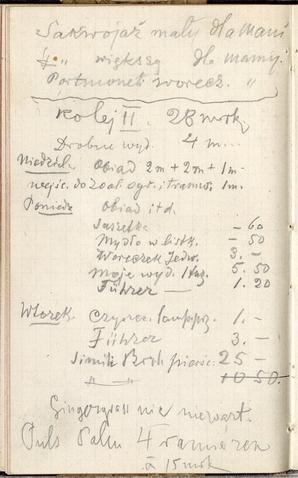 Sakwojaż mały dla Mani
" większy dla mamy.
Portmonetk woreczk. "
Kolej II. 28 mrk.
Drobne wyd. 4 m...
Niedziel. Obiad 2m + 2m + 1m
wejśc. do zool. ogr. i tramw. 1m.
Poniedz Obiad itd.
Saszetka – 60
Mydło w listk. – 50
Woreczek Jedw. 3. –
moje wyd. 5. 50
Führer — 1. 20
Wtorek. czyszcz. 1. –
Führer 3. –
Simili Broch 25 –
— " — 10 50.
Gingergrass nie
Puls Palm 4 ramierek
à 15 mrk